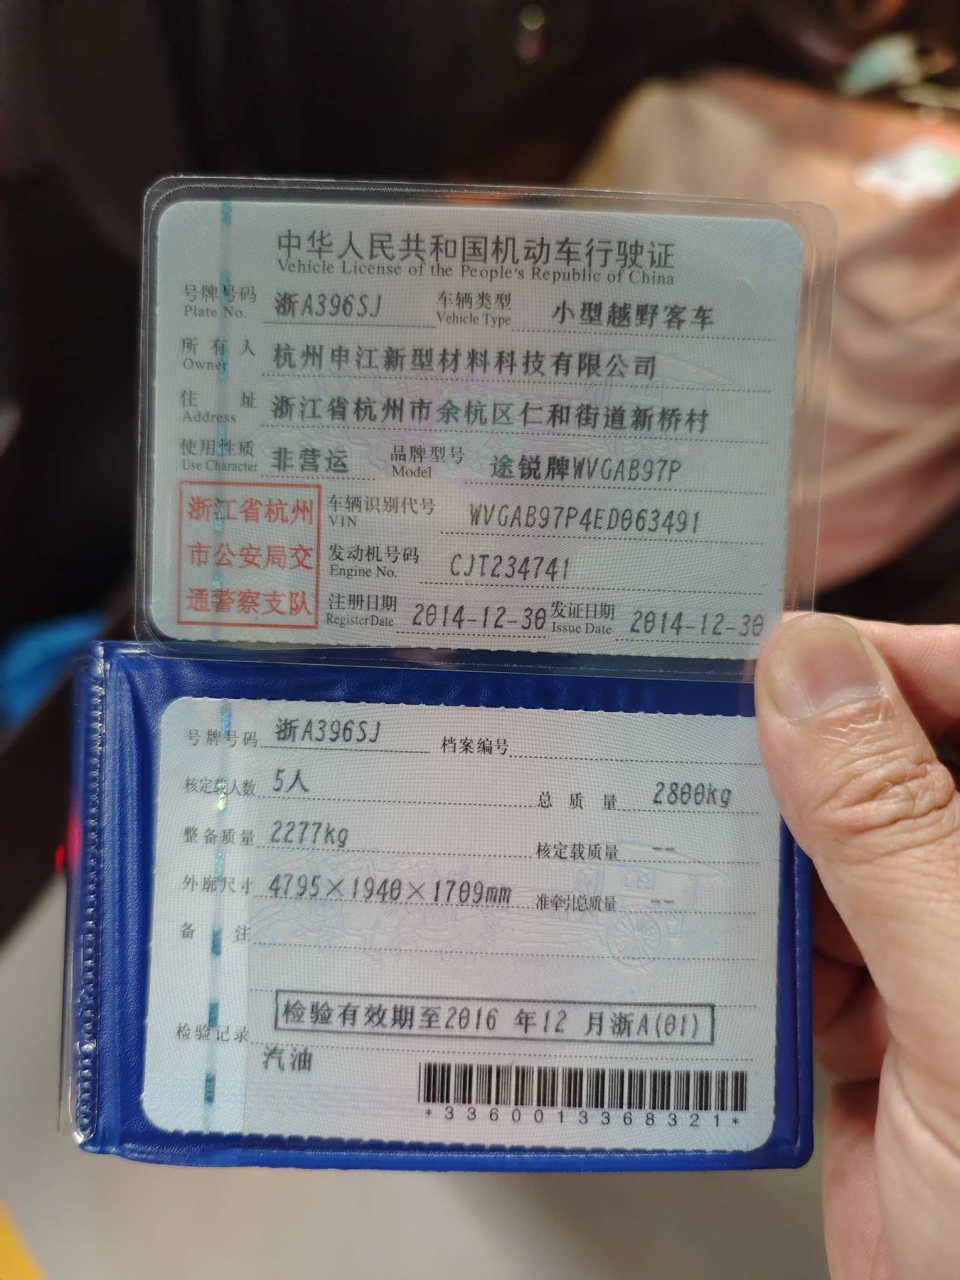 中华人民共和国机动车行驶证
Vehicle License of the People's Republic of China
号牌号码 浙A396SJ 车辆类型 小型越野客车
Plate No. Vehicle Type
所有人 杭州申江新型材料科技有限公司
Owner
住址 浙江省杭州市余杭区仁和街道新桥村
Address
使用性质 非营运 品牌型号 途锐牌WVGAB97P
Use Character Model
浙江省杭州
市公安局交
通警察支队
车辆识别代号 WVGAB97P4ED063491
VIN
发动机号码 CJT234741
Engine No.
注册日期 2014-12-30 发证日期 2014-12-30
Register Date Issue Date
号牌号码 浙A396SJ 档案编号
核定载人数 5人 总质量 2800kg
整备质量 2277kg 核定载质量 --
外廓尺寸 4795×1940×1709mm 准牵引总质量 --
备注
检验记录 检验有效期至2016 年12 月浙A(01)
汽油
*3360013368321*